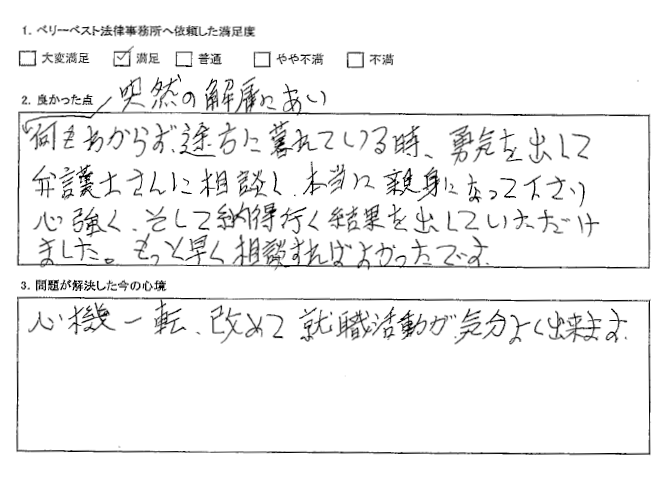 1. ベリーベスト法律事務所へ依頼した満足度
□ 大変満足 ☑ 満足 □ 普通 □ やや不満 □ 不満
2. 良かった点
突然の解雇にあい
何もわからず、途方に暮れている時、勇気を出して
弁護士さんに相談し、本当に親身になって下さり
心強く、そして納得行く結果を出していただけ
ました。もっと早く相談すればよかったです。
3. 問題が解決した今の心境
心機一転、改めて就職活動が気分よく出来ます。